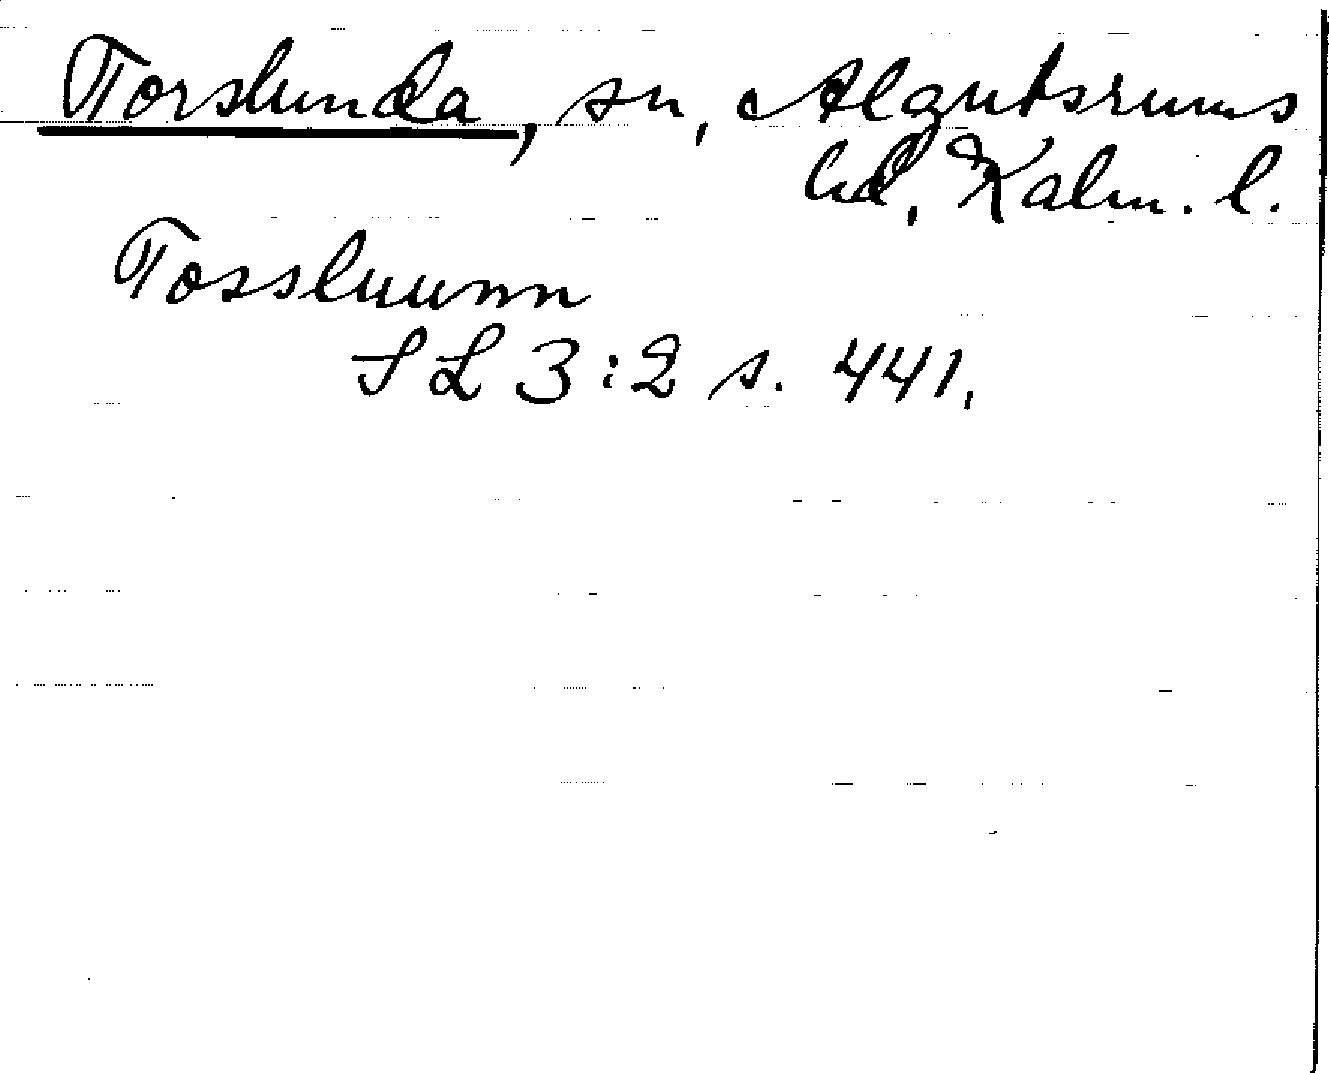 Torslunda, sn, Algutsrums
hd, Kalm. l.
Tossluunn
SL 3:2 s. 441.